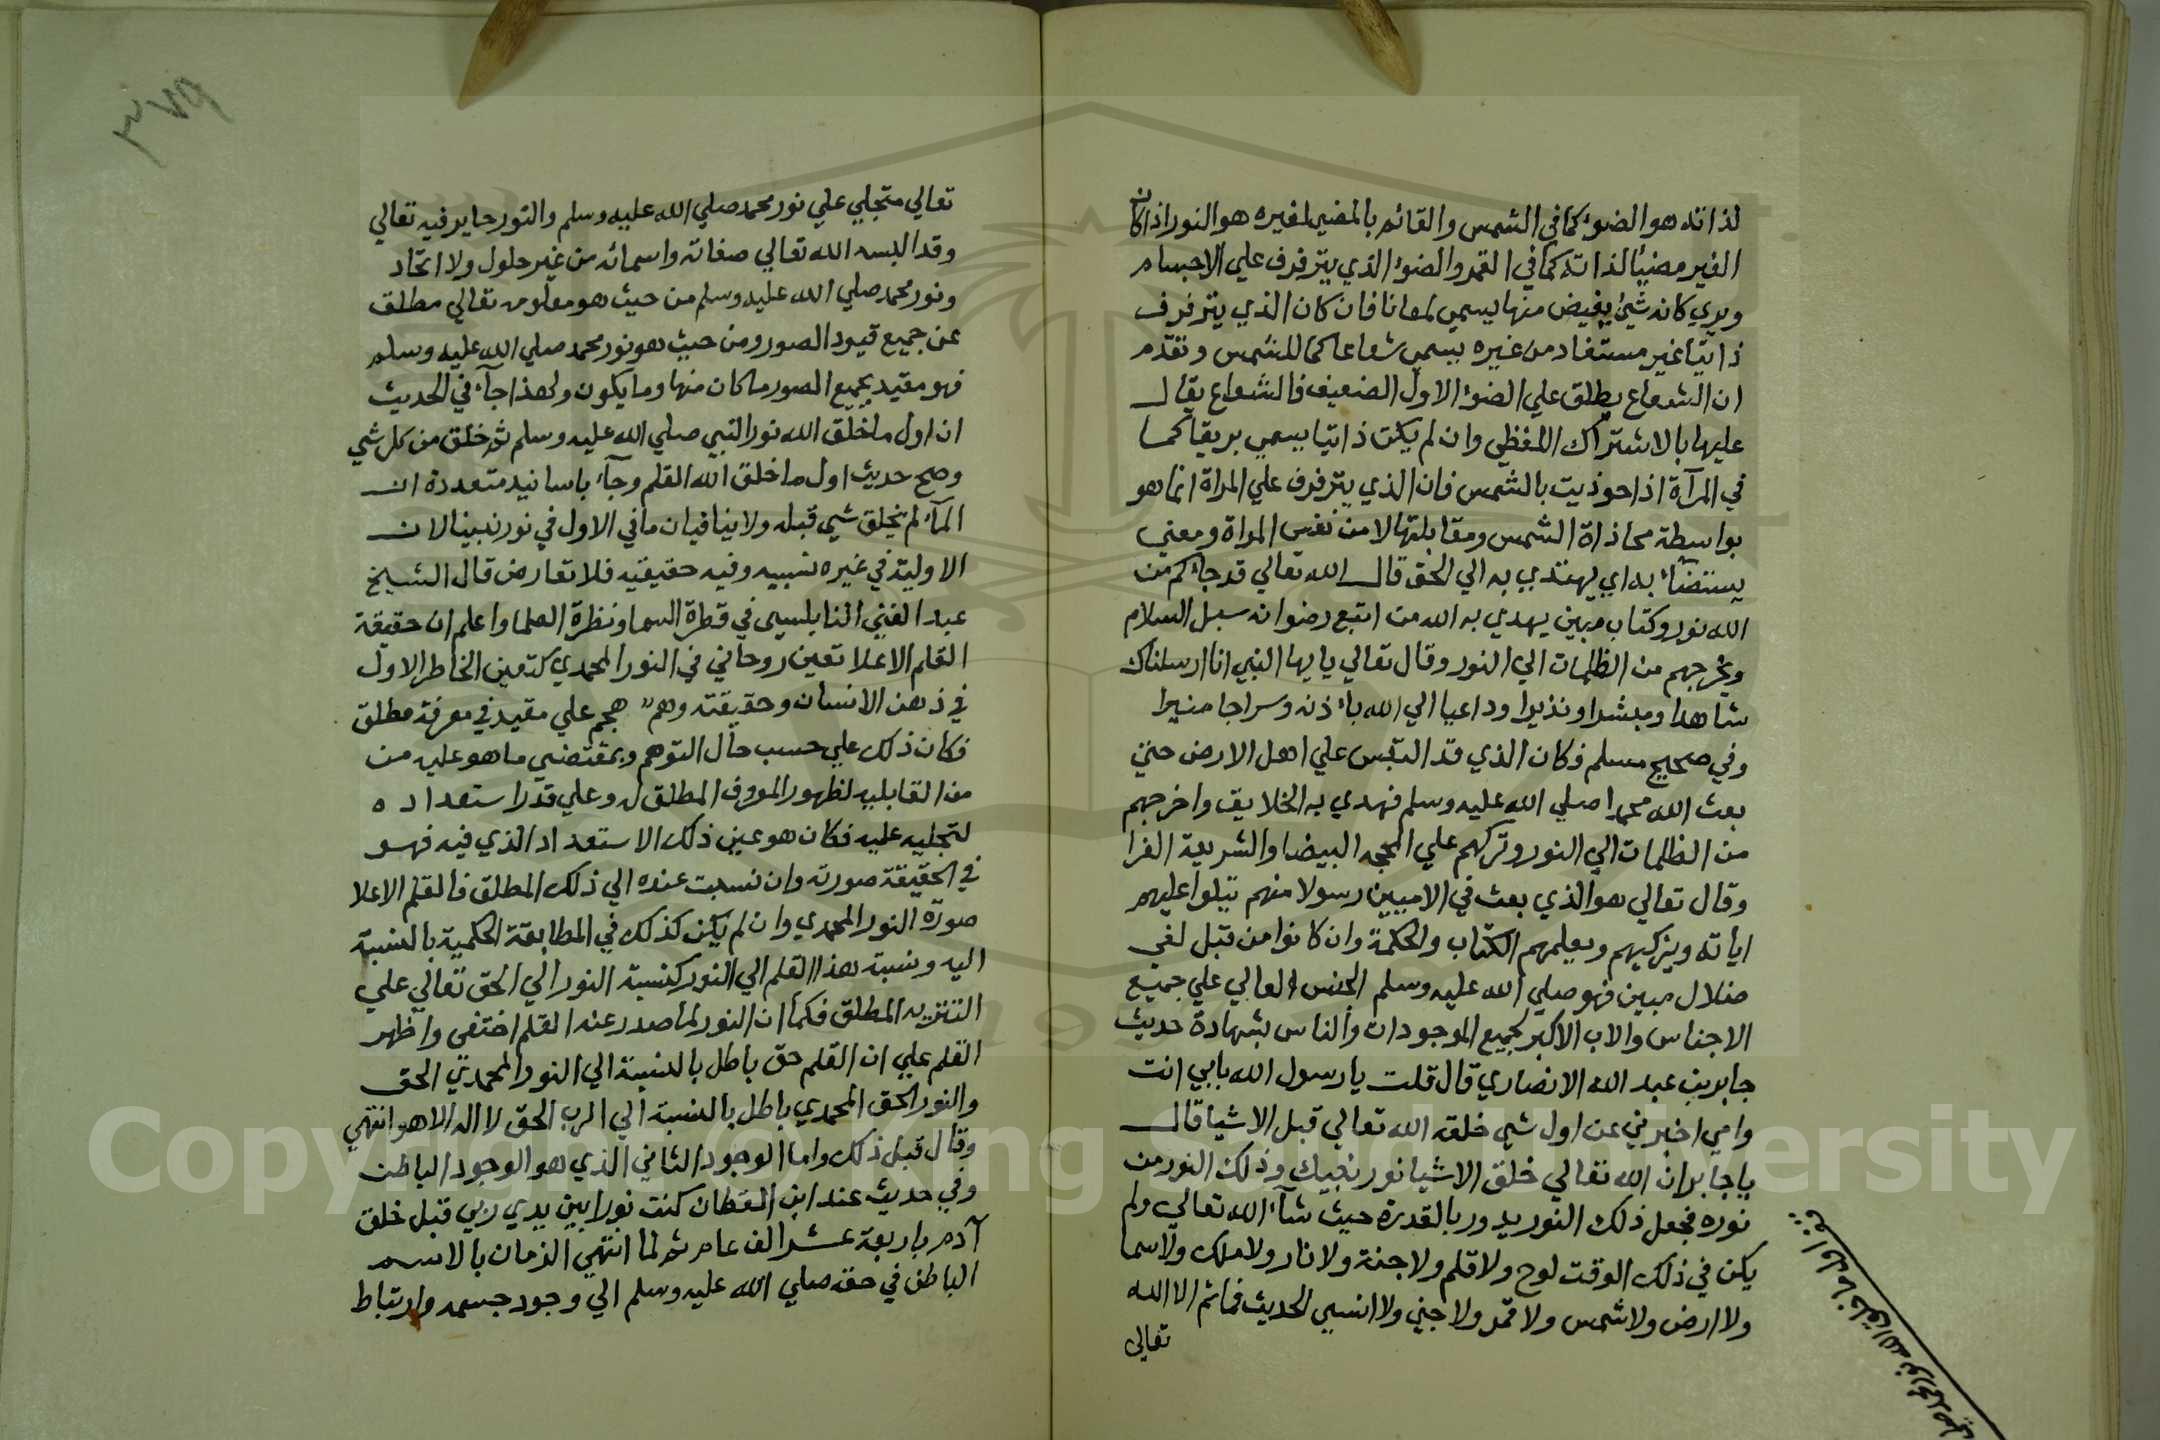 لذاته هو الضوء كما في الشمس والقائم بالمضيء لغيره هو النور اذا كان
الغير مضيئا لذاته كما في القمر والضوء الذي يترفرف علي الاجسام
ويري كانه شيئ يفيض منها يسمي لمعانا فان كان الذي يترفرف
ذاتيا غير مستفاد من غيره يسمي شعاعا كما للشمس وتقدم
ان الشعاع يطلق علي الضوء الاول الضعيف فالشعاع يقال
عليها بالاشتراك اللفظي وان لم يكن ذاتيا يسمي بريقا كما
في المرآة اذا حوذيت بالشمس فان الذي يترفرف علي المراة انما هو
بواسطة محاذاة الشمس ومقابلتها لا من نفس المراة ومعني
يستضآء به اي يهتدي به الي الحق قال الله تعالي قد جاءكم من
الله نور وكتاب مبين يهدي به الله من اتبع رضوانه سبل السلام
ويخرجهم من الظلمات الي النور وقال تعالي يايها النبي انا ارسلناك
شاهدا ومبشرا ونذيرا وداعيا الي الله باذنه وسراجا منيرا
وفي صحيح مسلم فكان الذي قد التبس علي اهل الارض حتي
بعث الله محمدا صلي الله عليه وسلم فهدي به الخلايق واخرجهم
من الظلمات الي النور وتركهم علي المحجه البيضا والشريعة الغرا
وقال تعالي هو الذي بعث في الاميين رسولا منهم يتلوا عليهم
اياته ويزكيهم ويعلمهم الكتاب والحكمة وان كانوا من قبل لفي
ضلال مبين فهو صلي الله عليه وسلم الجنس العالي علي جميع
الاجناس والاب الاكبر لجميع الموجودات والناس بشهادة حديث
جابر بن عبد الله الانصاري قال قلت يا رسول الله بابي انت
وامي اخبرني عن اول شي خلقه الله تعالي قبل الاشيا قال
يا جابر ان الله تعالي خلق الاشيا نور نبيك وذلك النور من
نوره فجعل ذلك النور يدور بالقدرة حيث شآء الله تعالي ولم
يكن في ذلك الوقت لوح ولا قلم ولا جنة ولا نار ولا ملك ولا سما
ولا ارض ولا شمس ولا قمر ولا جني ولا انسي الحديث فما ثم الا الله
تعالي
اول ما خلق الله نور محمد
٣٧٩
تعالي متجلي علي نور محمد صلي الله عليه وسلم والنور حاير فيه تعالي
وقد البسه الله تعالي صفاته واسمائه من غير حلول ولا اتحاد
ونور محمد صلي الله عليه وسلم من حيث هو معلومه تعالي مطلق
عن جميع قيود الصور ومن حيث هو نور محمد صلي الله عليه وسلم
فهو مقيد بجميع الصور ما كان منها وما يكون ولهذا جآء في الحديث
ان اول ما خلق الله نور النبي صلي الله عليه وسلم ثم خلق من كل شي
وصح حديث اول ما خلق الله القلم وجآء باسانيد متعددة ان
المآء لم يخلق شي قبله ولا ينافيان ما في الاول في نور نبينا لان
الاولية في غيره نسبيه وفيه حقيقيه فلا تعارض قال الشيخ
عبد الغني النابلسي في قطرة السما ونظرة العلما واعلم ان حقيقة
القلم الاعلا تعين روحاني في النور المحمدي كتعين الخاطر الاول
في ذهن الانسان وحقيقته وهم هجم علي مقيد في معرفة مطلق
فكان ذلك علي حسب حال التوهم وبمقتضي ما هو عليه من
من القابليه لظهور المعروف المطلق له وعلي قدر استعداده
لتجليه عليه فكان هو عين ذلك الاستعداد الذي فيه فهو
في الحقيقة صورته وان نسبت عنده الي ذلك المطلق فالقلم الاعلا
صورة النور المحمدي وان لم يكن كذلك في المطابقة الحكمية بالنسبة
اليه ونسبة هذا القلم الي النور كنسبة النور الي الحق تعالي علي
التنزيه المطلق فكما ان النور لما صدر عنه القلم اختفي واظهر
القلم علي ان القلم حق باطل بالنسبة الي النور المحمدي الحق
والنور الحق المحمدي باطل بالنسبة الي الرب الحق لا اله الا هو انتهي
وقال قبل ذلك واما الوجود الثاني الذي هو الوجود الباطن
وفي حديث عند ابن القطان كنت نورا بين يدي ربي قبل خلق
آدم باربعة عشر الف عام ثم لما انتهي الزمان بالاسم
الباطن في حقه صلي الله عليه وسلم الي وجود جسمه وارتباط
Copyright © King Saud University